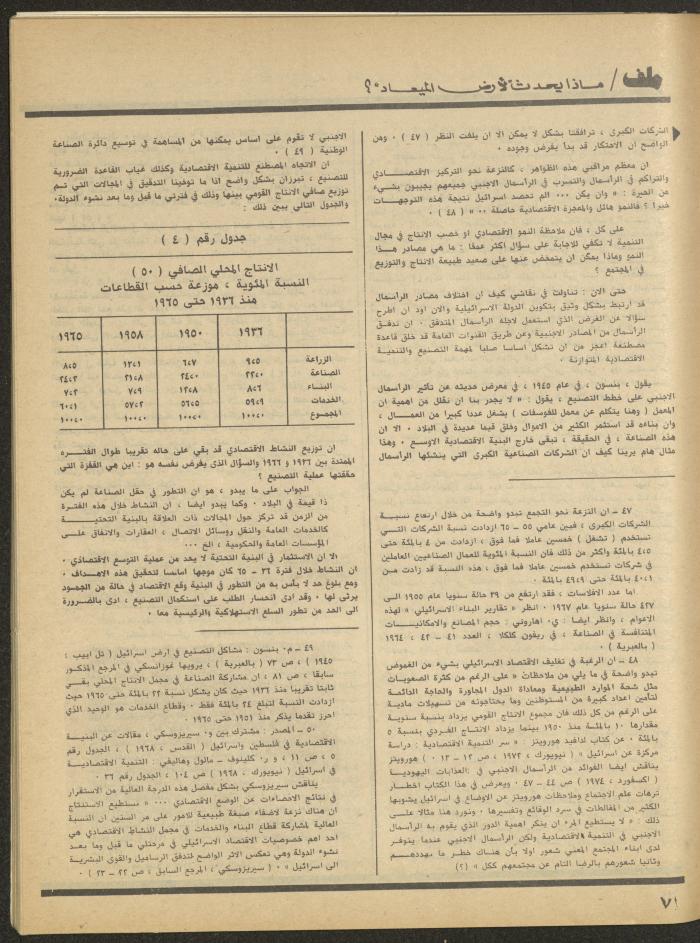 ملف / ماذا يحدث لأرض الميعاد ؟
الشركات الكبرى ، ترافقتا بشكل لا يمكن الا ان يلفت النظر ( ٤٧ ) ٠ ومن
الواضح ان الاحتكار قد بدأ يفرض وجوده ٠
ان معظم مراقبي هذه الظواهر ، كالنزعة نحو التركيز الاقتصـــادي
والتراكم في الرأسمال والتسرب في الرأسمال الاجنبي جميعهم يجيبون بشيء
من الحيرة : « وان يكن ٠٠٠ الم تحصد اسرائيل نتيجة هذه التوجهــات
خيرا ؟ فالنمو هائل والمعجزة الاقتصادية حاصلة ٠٠ » ( ٤٨ ) ٠
على كل ، فان ملاحظة النمو الاقتصادي او خصب الانتاج في مجال
التنمية لا تكفي للاجابة على سؤال اكثر عمقا : ما هي مصادر هــذا
النمو وماذا يمكن ان يتمخض عنها على صعيد طبيعة الانتاج والتوزيع
في المجتمع ؟
حتى الان : تناولت في نقاشي كيف ان اختلاف مصادر الرأسمال
قد ارتبط بشكل وثيق بتكوين الدولة الاسرائيلية والان اود ان اطرح
سؤالا عن الغرض الذي استعمل لاجله الرأسمال المتدفق ٠ ان تدفــق
الرأسمال من المصادر الاجنبية وعن طريق القنوات العامة قد خلق قاعدة
مصطنعة اعجز من ان تشكل اساسا صلبا لمهمة التصنيع والتنميــة
الاقتصادية المتوازنة ٠
يقول ، بنسون ، في عام ١٩٤٥ ، في معرض حديثه عن تأثير الرأسمال
الاجنبي على خطط التصنيع ، يقول : « لا يجدر بنا ان نقلل من اهمية ان
المعمل ( وهنا يتكلم عن معمل للفوسفات ) يشغل عددا كبيرا من العمــال ،
وان بناءه قد استثمر الكثير من الاموال وخلق قيما عديدة في البلاد ٠ الا ان
هذه الصناعة ، في الحقيقة ، تبقى خارج البنية الاقتصادية الاوسع ٠ وهذا
مثال هام يرينا كيف ان الشركات الصناعية الكبرى التي ينشئها الرأسمال
٤٧ – ان النزعة نحو التجمع تبدو واضحة من خلال ارتفاع نسبــة
الشركات الكبرى ، فبين عامي ٥٥ – ٦٥ ازدادت نسبة الشركات التــي
تستخدم ( تشغل ) خمسين عاملا فما فوق ، ازدادت من ٤ بالمئة حتى
٤٫٥ بالمئة واكثر من ذلك فان النسبة المئوية للعمال الصناعيين العاملين
في شركات تستخدم خمسين عاملا فما فوق ، هذه النسبة قد زادت مــن
٤٠٫١ بالمئة حتى ٤٩٫٩ بالمئة ٠
اما عدد الافلاسات ، فقد ارتفع من ٣٩ حالة سنويا عام ١٩٥٥ الــى
٤٢٧ حالة سنويا عام ١٩٦٧ ٠ انظر « تقارير البناء الاسرائيلي » لهذه
الاعوام ، وانظر ايضا : ي٠ اهاروني : حجم المصانع والامكانيــات
المتنافسة في الصناعة ، في ريفون كلكلا ، العدد ٤١ – ٤٢ ، ١٩٦٤
( بالعبرية ) ٠
٤٨ – ان الرغبة في تغليف الاقتصاد الاسرائيلي بشيء من الغموض
تبدو واضحة في ما يلي من ملاحظات « على الرغم من كثرة الصعوبات
مثل شحة الموارد الطبيعية ومعاداة الدول المجاورة والحاجة الدائمــة
لتأمين اعداد كبيرة من المستوطنين وما يحتاجونه من تسهيلات مادية
على الرغم من كل ذلك فان مجموع الانتاج القومي يزداد بنسبة سنويــة
مقدارها ١٠ بالمئة منذ ١٩٥٠ بينما يزداد الانتاج الفــردي بنسبة ٥
بالمئة ٠ عن كتاب لدافيد هورويتز : « سر التنمية الاقتصادية : دراسة
مركزة عن اسرائيل » ( نيويورك ، ١٩٧٣ ، ص ١٢ – ١٣ ٠ ) هورويتز
يناقش ايضا الفوائد من الرأسمال الاجنبي في :العذابات اليهوديــة
( اكسفورد ، ١٩٧٤ ) ص ٤٤ – ٤٧ ٠ ويعرض في هذا الكتاب اخطــار
ترهات علم الاجتماع وملاحظات هورويتز عن الاوضاع في اسرائيل يشوبها
الكثير من المغالطات في سرد الوقائع وتفسيرها ٠ ونورد هنا مثالا علــى
ذلك : « لا يستطيع المرء ان ينكر اهمية الدور الذي يقوم به الرأسمال
الاجنبي في التنمية الاقتصادية ولكن الرأسمال الاجنبي عندما يتوفــر
لدى ابناء المجتمع المعني شعور اولا بأن هنــاك خطــر ما يهددهــم
وثانيا شعورهم بالرضا التام عن مجتمعهم ككل » (؟)
الاجنبي لا تقوم على اساس يمكنها من المساهمة في توسيع دائرة الصناعة
الوطنية ( ٤٩ ) ٠
ان الاتجاه المصطنع للتنمية الاقتصادية وكذلك غياب القاعدة الضرورية
للتصنيع ، تبرزان بشكل واضح اذا ما توخينا التدقيق في المجالات التي تــم
توزيع صافي الانتاج القومي بينها وذلك في فترتي ما قبل وما بعد نشوء الدولة٠
والجدول التالي يبين ذلك :
جدول رقم ( ٤ )
الانتاج المحلي الصافي ( ٥٠ )
النسبة المئوية ، موزعة حسب القطاعات
منذ ١٩٣٦ حتى ١٩٦٥
١٩٣٦ ١٩٥٠ ١٩٥٨ ١٩٦٥
الزراعة ٩٫٥ ٦٫٧ ١٢٫١ ٨٫٥
الصناعة ٢٢٫٠ ٢٤٫٠ ٢١٫٨ ٢٤٫٢
البنــاء ٨٫٦ ١٢٫٨ ٧٫٩ ٧٫٢
الخدمات ٥٩٫٩ ٥٦٫٥ ٥٧٫٢ ٦٠٫١
المجموع ١٠٠٫٠ ١٠٠٫٠ ١٠٠٫٠ ١٠٠٫٠
ان توزيع النشاط الاقتصادي قد بقي على حاله تقريبا طوال الفتــره
الممتدة بين ١٩٣٦ و ١٩٦٦ والسؤال الذي يفرض نفسه هو : اين هي القفزة التي
حققتها عملية التصنيع ؟
الجواب على ما يبدو ، هو ان التطور في حقل الصناعة لم يكن
ذا قيمة في البلاد ٠ وكما يبدو ايضا ، ان النشاط خلال هذه الفتــرة
من الزمن قد تركز حول المجالات ذات العلاقة بالبنية التحتيــة
كالخدمات العامة والنقل روسائل الاتصال ، العقارات والانفاق علــى
المؤسسات العامة والحكومية ، الخ ٠٠٠
الا ان الاستثمار في البنية التحتية لا يحد من عملية التوسع الاقتصادي ٠
ان النشاط خلال فترة ٣٦ – ٦٥ كان موجها اساسا لتحقيق هذه الاهــداف ٠
ومع بلوغ حد لا بأس به من التطور في البنية وقع الاقتصاد في حالة من الجمــود
يرثى لها ٠ وقد ادى انحسار الطلب على استكمال التصنيع ، ادى بالضــرورة
الى الحد من تطور السلع الاستهلاكية والرئيسية معا ٠
٤٩ – م٠ بنسون : مشاكل التصنيع في ارض اسرائيل ( تل ابيب ،
١٩٤٥ ) ، ص ٧٣ ( بالعبرية ) ، يرويها غوزانسكي في المرجع المذكــور
سابقا ، ص ٨١ ٠ ان مشاركة الصناعة في مجمل الانتاج المحلي بقــي
ثابتا تقريبا منذ ١٩٣٦ حيث كان يشكل نسبة ٢٢ بالمئة حتى ١٩٦٥ حيث
ازدادت النسبة لتبلغ ٢٤ بالمئة فقط ٠ وقطاع الخدمات هو الوحيد الذي
احرز تقدما يذكر منذ ١٩٥١ حتى ١٩٦٥ ٠
٥٠ – المصدر : مشترك بين و٠ سيريزوسكي ، مقالات عن البنيــة
الاقتصادية في فلسطين واسرائيل ( القدس ، ١٩٦٨ ) ، الجدول رقم
٥ ، ص ١١ ، و ر٠ كلينوف – مالول وهاليفي : التنمية الاقتصاديــة
في اسرائيل ( نيويورك ، ١٩٦٨ ) ص ١٠٤ ، الجدول رقم ٣٦ ٠
يناقش سيريزوسكي بشكل مفصل هذه الدرجة العالية من الاستقرار
في نتائج الاحصاءات عن الوضع الاقتصادي ٠٠٠ « نستطيع الاستنتاج
ان هناك نزعة لاضفاء صبغة طبيعية للامور على مر السنين ان النسبة
العالية لمشاركة قطاع البناء والخدمات في مجمل النشاط الاقتصادي هي
احد اهم خصوصيات الاقتصاد الاسرائيلي في مرحلتي ما قبل وما بعــد
نشوء الدولة وهي تعكس الاثر الواضح لتدفق الرساميل والقوى البشريــة
الى اسرائيل » ٠ ( سيريزوسكي ، المرجع السابق ، ص ٢٢ – ٢٣ ) ٠
٧١